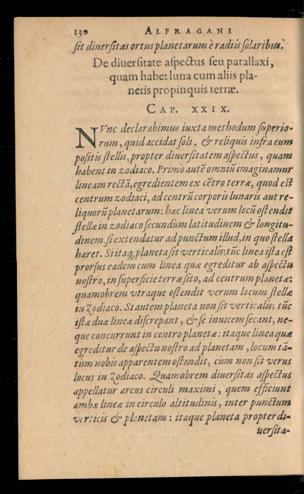 130 ALFRAGANI
sit diuersitas ortus planetarum è radiis solaribus.
De diuersitate aspectus seu parallaxi,
quam habet luna cum aliis pla-
netis propinquis terræ.
CAP. XXIX.
NVnc declarabimus iuxta methodum superio-
rum, quid accidat soli, & reliquis infra eum
positis stellis, propter diuersitatem aspectus, quam
habent in zodiaco. Primò autē omniū imaginamur
lineam rectā, egredientem ex cētro terræ, quod est
centrum zodiaci, ad centrū corporis lunaris aut re-
liquorū planetarum: hæc linea verum locū ostendit
stellæ in zodiaco secundùm latitudinem & longitu-
dinem si extendatur ad punctum illud, in quo stella
hæret. Si itaq; planeta sit verticalis, tūc linea ista est
prorsus eadem cum linea quæ egreditur ab aspectu
nostro, in superficie terræ sito, ad centrum planetæ:
quamobrem vtraque ostendit verum locum stellæ
in zodiaco. Si autem planeta non sit verticalis, tūc
istæ duæ lineæ discrepant, & se inuicem secant, ne-
que concurrunt in centro planetæ: itaque linea quæ
egreditur de aspectu nostro ad planetam, locum tā-
tùm nobis apparentem ostendit, cùm non sit verus
locus in zodiaco. Quamobrem diuersitas aspectus
appellatur arcus circuli maximi, quem efficiunt
ambæ lineæ in circulo altitudinis, inter punctum
verticis & planetam: itaque planeta propter di-
uersita-